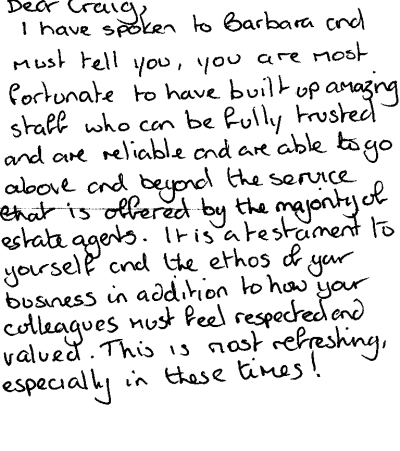 Dear Craig,
I have spoken to Barbara and
must tell you, you are most
fortunate to have built up amazing
staff who can be fully trusted
and are reliable and are able to go
above and beyond the service
that is offered by the majority of
estate agents. It is a testament to
yourself and the ethos of your
business in addition to how your
colleagues must feel respected and
valued. This is most refreshing,
especially in these times!